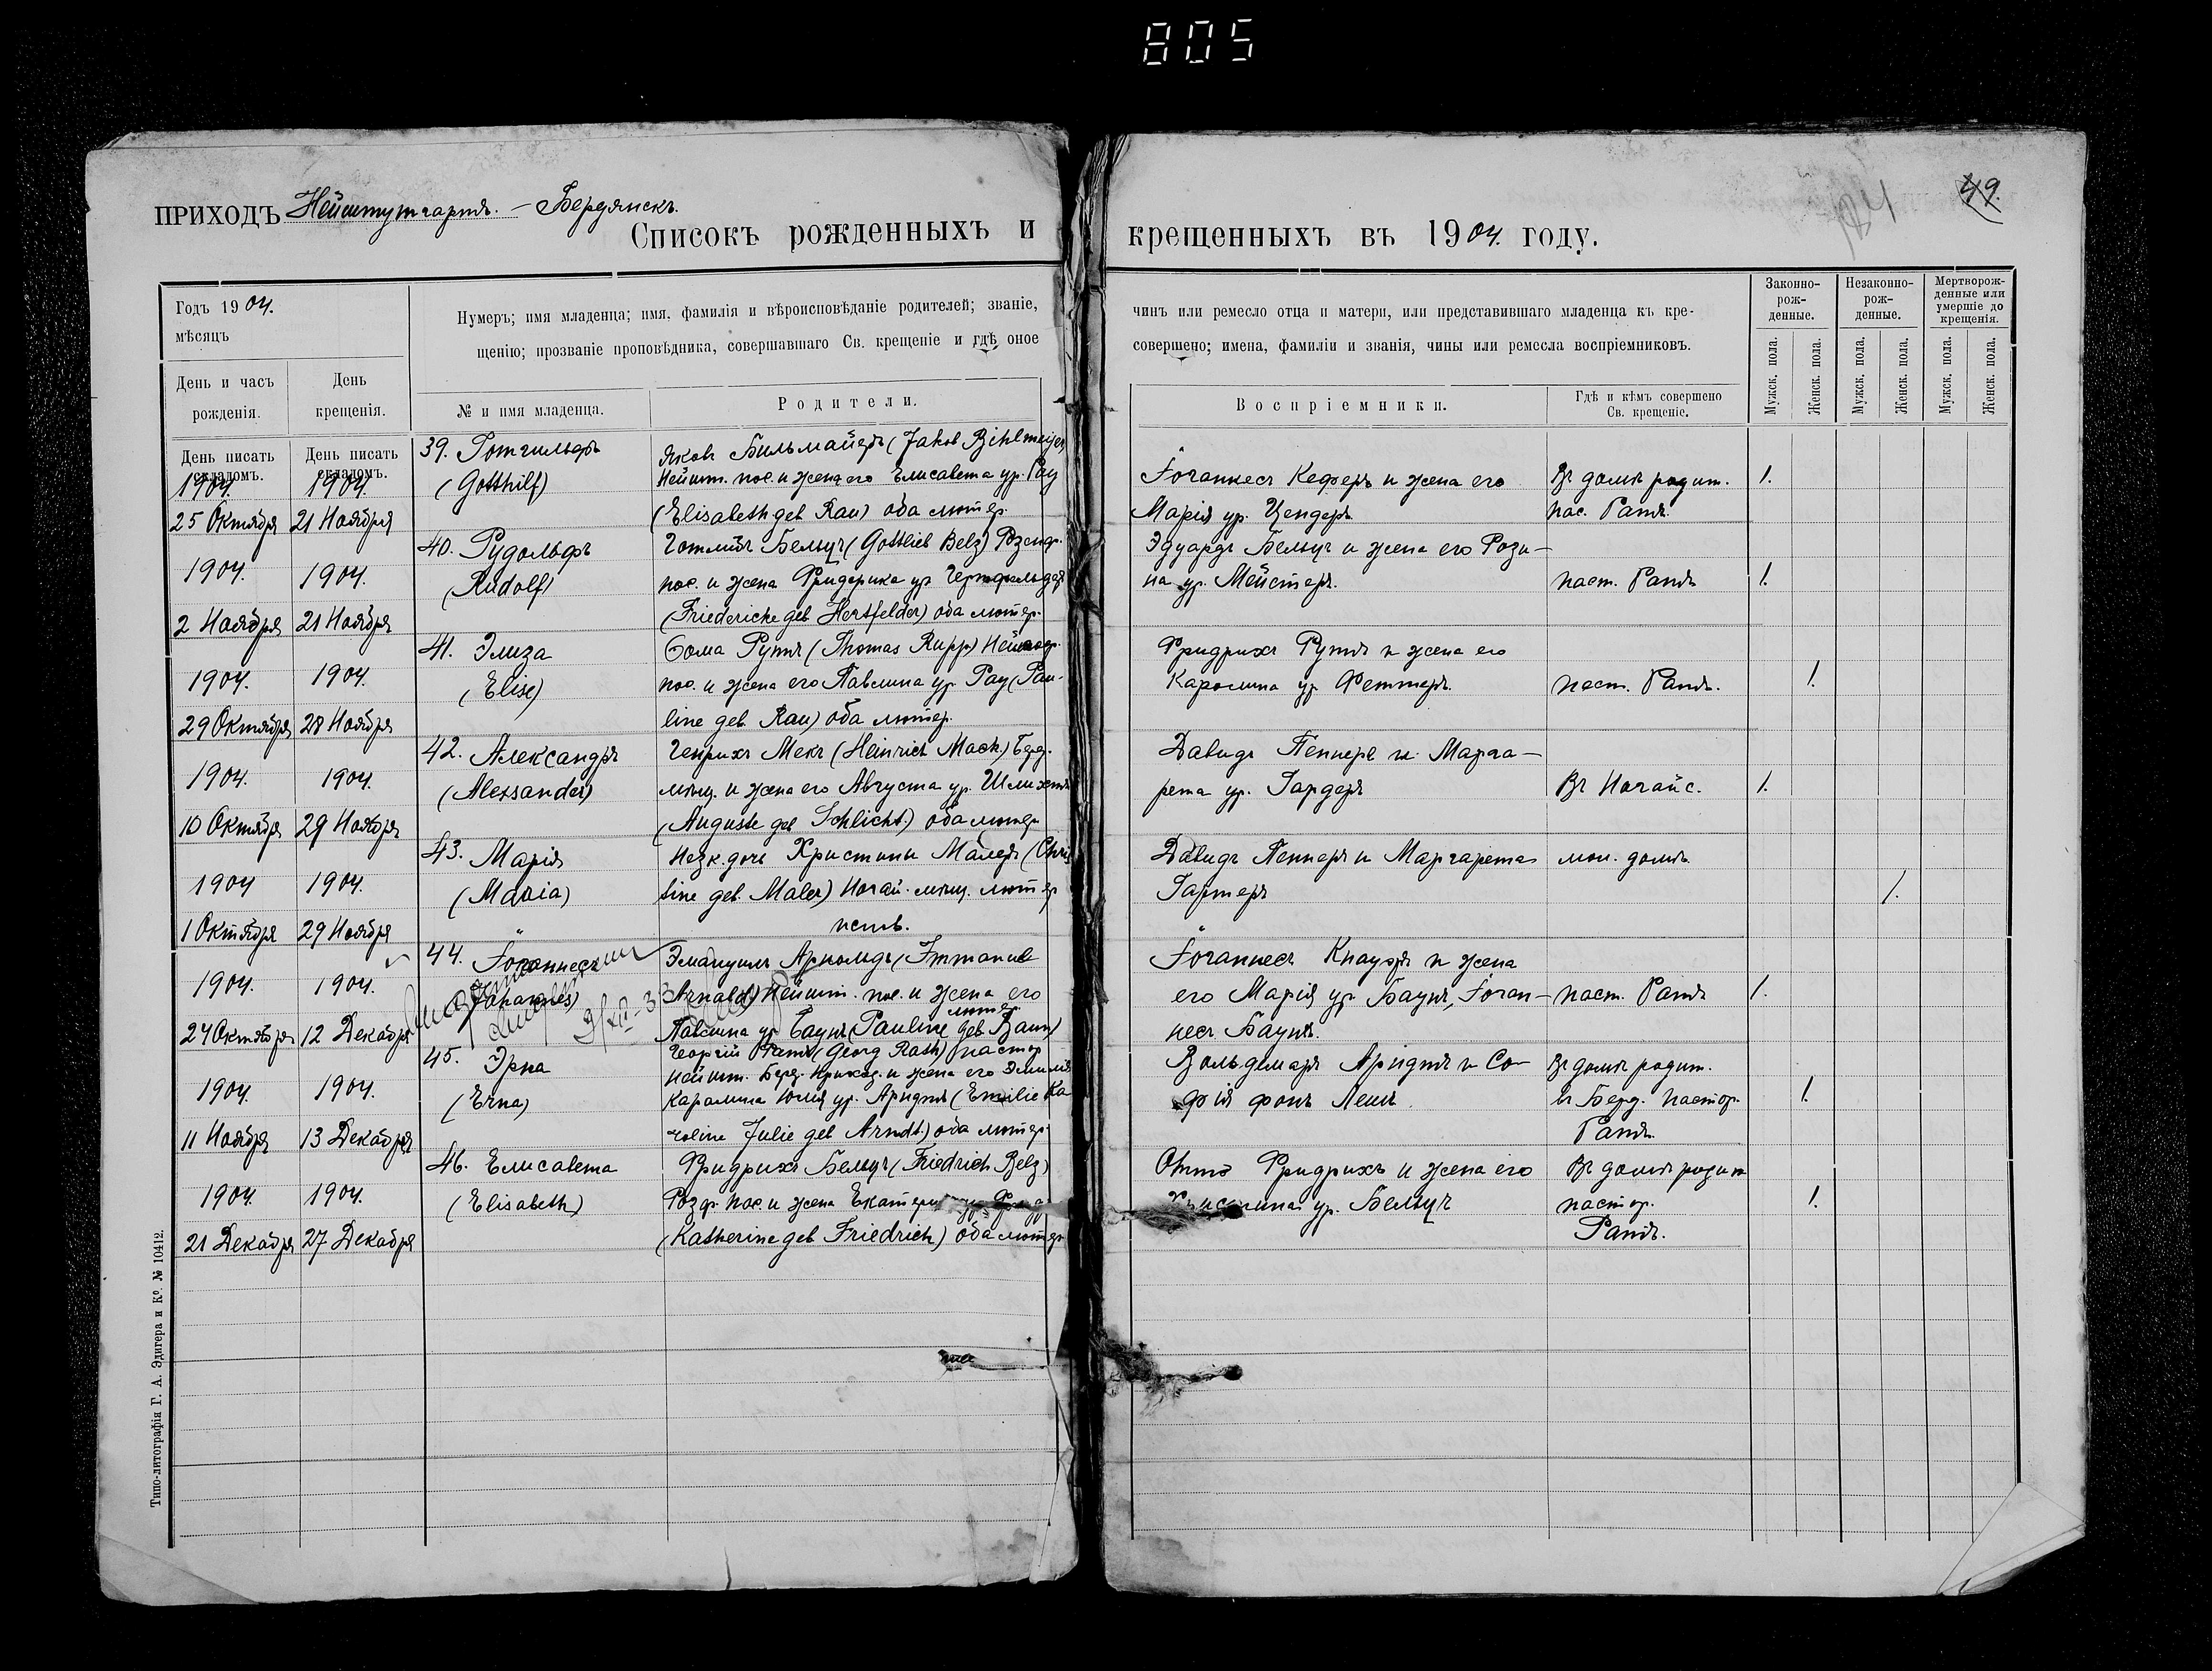 805
49.
ПРИХОДЪ Нейштутгартъ. – Бердянскъ.
Списокъ рожденныхъ и крещенныхъ въ 1904. году.
Годъ 1904.
мѣсяцъ
День и часъ рожденія.
День крещенія.
Нумеръ; имя младенца; имя, фамилія и вѣроисповѣданіе родителей; званіе, чинъ или ремесло отца и матери, или представившаго младенца къ кре-
щенію; прозваніе проповѣдника, совершавшаго Св. крещеніе и гдѣ оное совершено; имена, фамиліи и званія, чины или ремесла воспріемниковъ.
№ и имя младенца.
Родители.
Воспріемники.
Гдѣ и кѣмъ совершено Св. крещеніе.
Законно-рож-денные.
Незаконно-рож-денные.
Мертворож-денные или умершіе до крещенія.
Мужск. пола.
Женск. пола.
Мужск. пола.
Женск. пола.
Мужск. пола.
Женск. пола.
День писать складомъ.
День писать складомъ.
1904. 1904.
25 Октября 21 Ноября
39. Готгильфъ
(Gotthilf)
Яковъ Бильмайеръ (Jakob Bihlmeijer)
Нейшт. пос. и жена его Елисавета ур. Рау
(Elisabeth geb Rau) оба лютер.
Іоганнесъ Кеферъ и жена его
Марія ур. Цендеръ
Въ домѣ родит.
пас. Ратъ.
1.
1904. 1904.
2 Ноября 21 Ноября
40. Рудольфъ
(Rudolf)
Готлибъ Бельцъ (Gottlieb Belz) Розенф.
пос. и жена Фридерика ур. Герцфельдеръ
(Friedericke geb Hertsfelder) оба лютер.
Эдуардъ Бельцъ и жена его Рози-
на ур. Мейстеръ.
паст. Ратъ
1.
1904. 1904.
29 Октября 28 Ноября
41. Элиза
(Elise)
Ѳома Руппъ (Thomas Rupp)
пос. и жена его Павлина ур. Рау (Pau-
line geb. Rau) оба лютер.
Фридрихъ Руппъ и жена его
Каролина ур. Феттеръ.
паст. Ратъ.
1.
1904. 1904.
10 Октября 29 Ноября
42. Александръ
(Alexsander)
Генрихъ Мекъ (Heinrich Mack) Берд.
мѣщ. и жена его Августа ур. Шлихтъ
(Auguste geb Schlicht.) оба лютер
Давидъ Пеннеръ и Марга-
рета ур. Гардеръ
Въ Ногайс.
1.
1904 1904.
1 Октября 29 Ноября
43. Марія
(Maria)
Незк. дочь Христины Малеръ (Chris
tine geb. Maler) Ногай. мѣщ. лютер
Давидъ Пеннеръ и Маргарета
Гартеръ
мол. домъ.
1.
1904. 1904.
24 Октября 12 Декабря
44. Іоганнесъ
(Johannes)
Эмануилъ Арнольдъ (Immanuel
Arnold) Нейшт. пос. и жена его
Павлина ур. Баунъ (Pauline geb Baun) лютер.
Іоганнесъ Кнауэръ и жена
его Марія ур. Баунъ, Іоган-
несъ Баунъ.
паст. Ратъ
1.
1904. 1904.
11 Ноября 13 Декабря
45. Эрна
(Erna)
Георгій Ратъ (Georg Rath) пастор
Нейшт. Берд. приход. и жена его Эмилія
Каролина Юлія ур. Арндтъ (Emilie Ka
roline Julie geb Arndt.) оба лютер.
Вольдемаръ Арндтъ и Со-
фія фонъ Лешъ
Въ домѣ родит.
въ Берд. пастор.
Ратъ.
1.
1904. 1904.
21 Декабря 27 Декабря
46. Елисавета
(Elisabeth)
Фридрихъ Бельцъ (Friedrich Belz)
Розф. пос. и жена
(Katherine geb Friedrich) оба лютер.
Отто Фридрихъ и жена его
ур. Бельцъ
Въ домѣ родит
пастор.
Ратъ.
1.
Типо-литографія Г. А. Эдигера и Кº. № 10412.